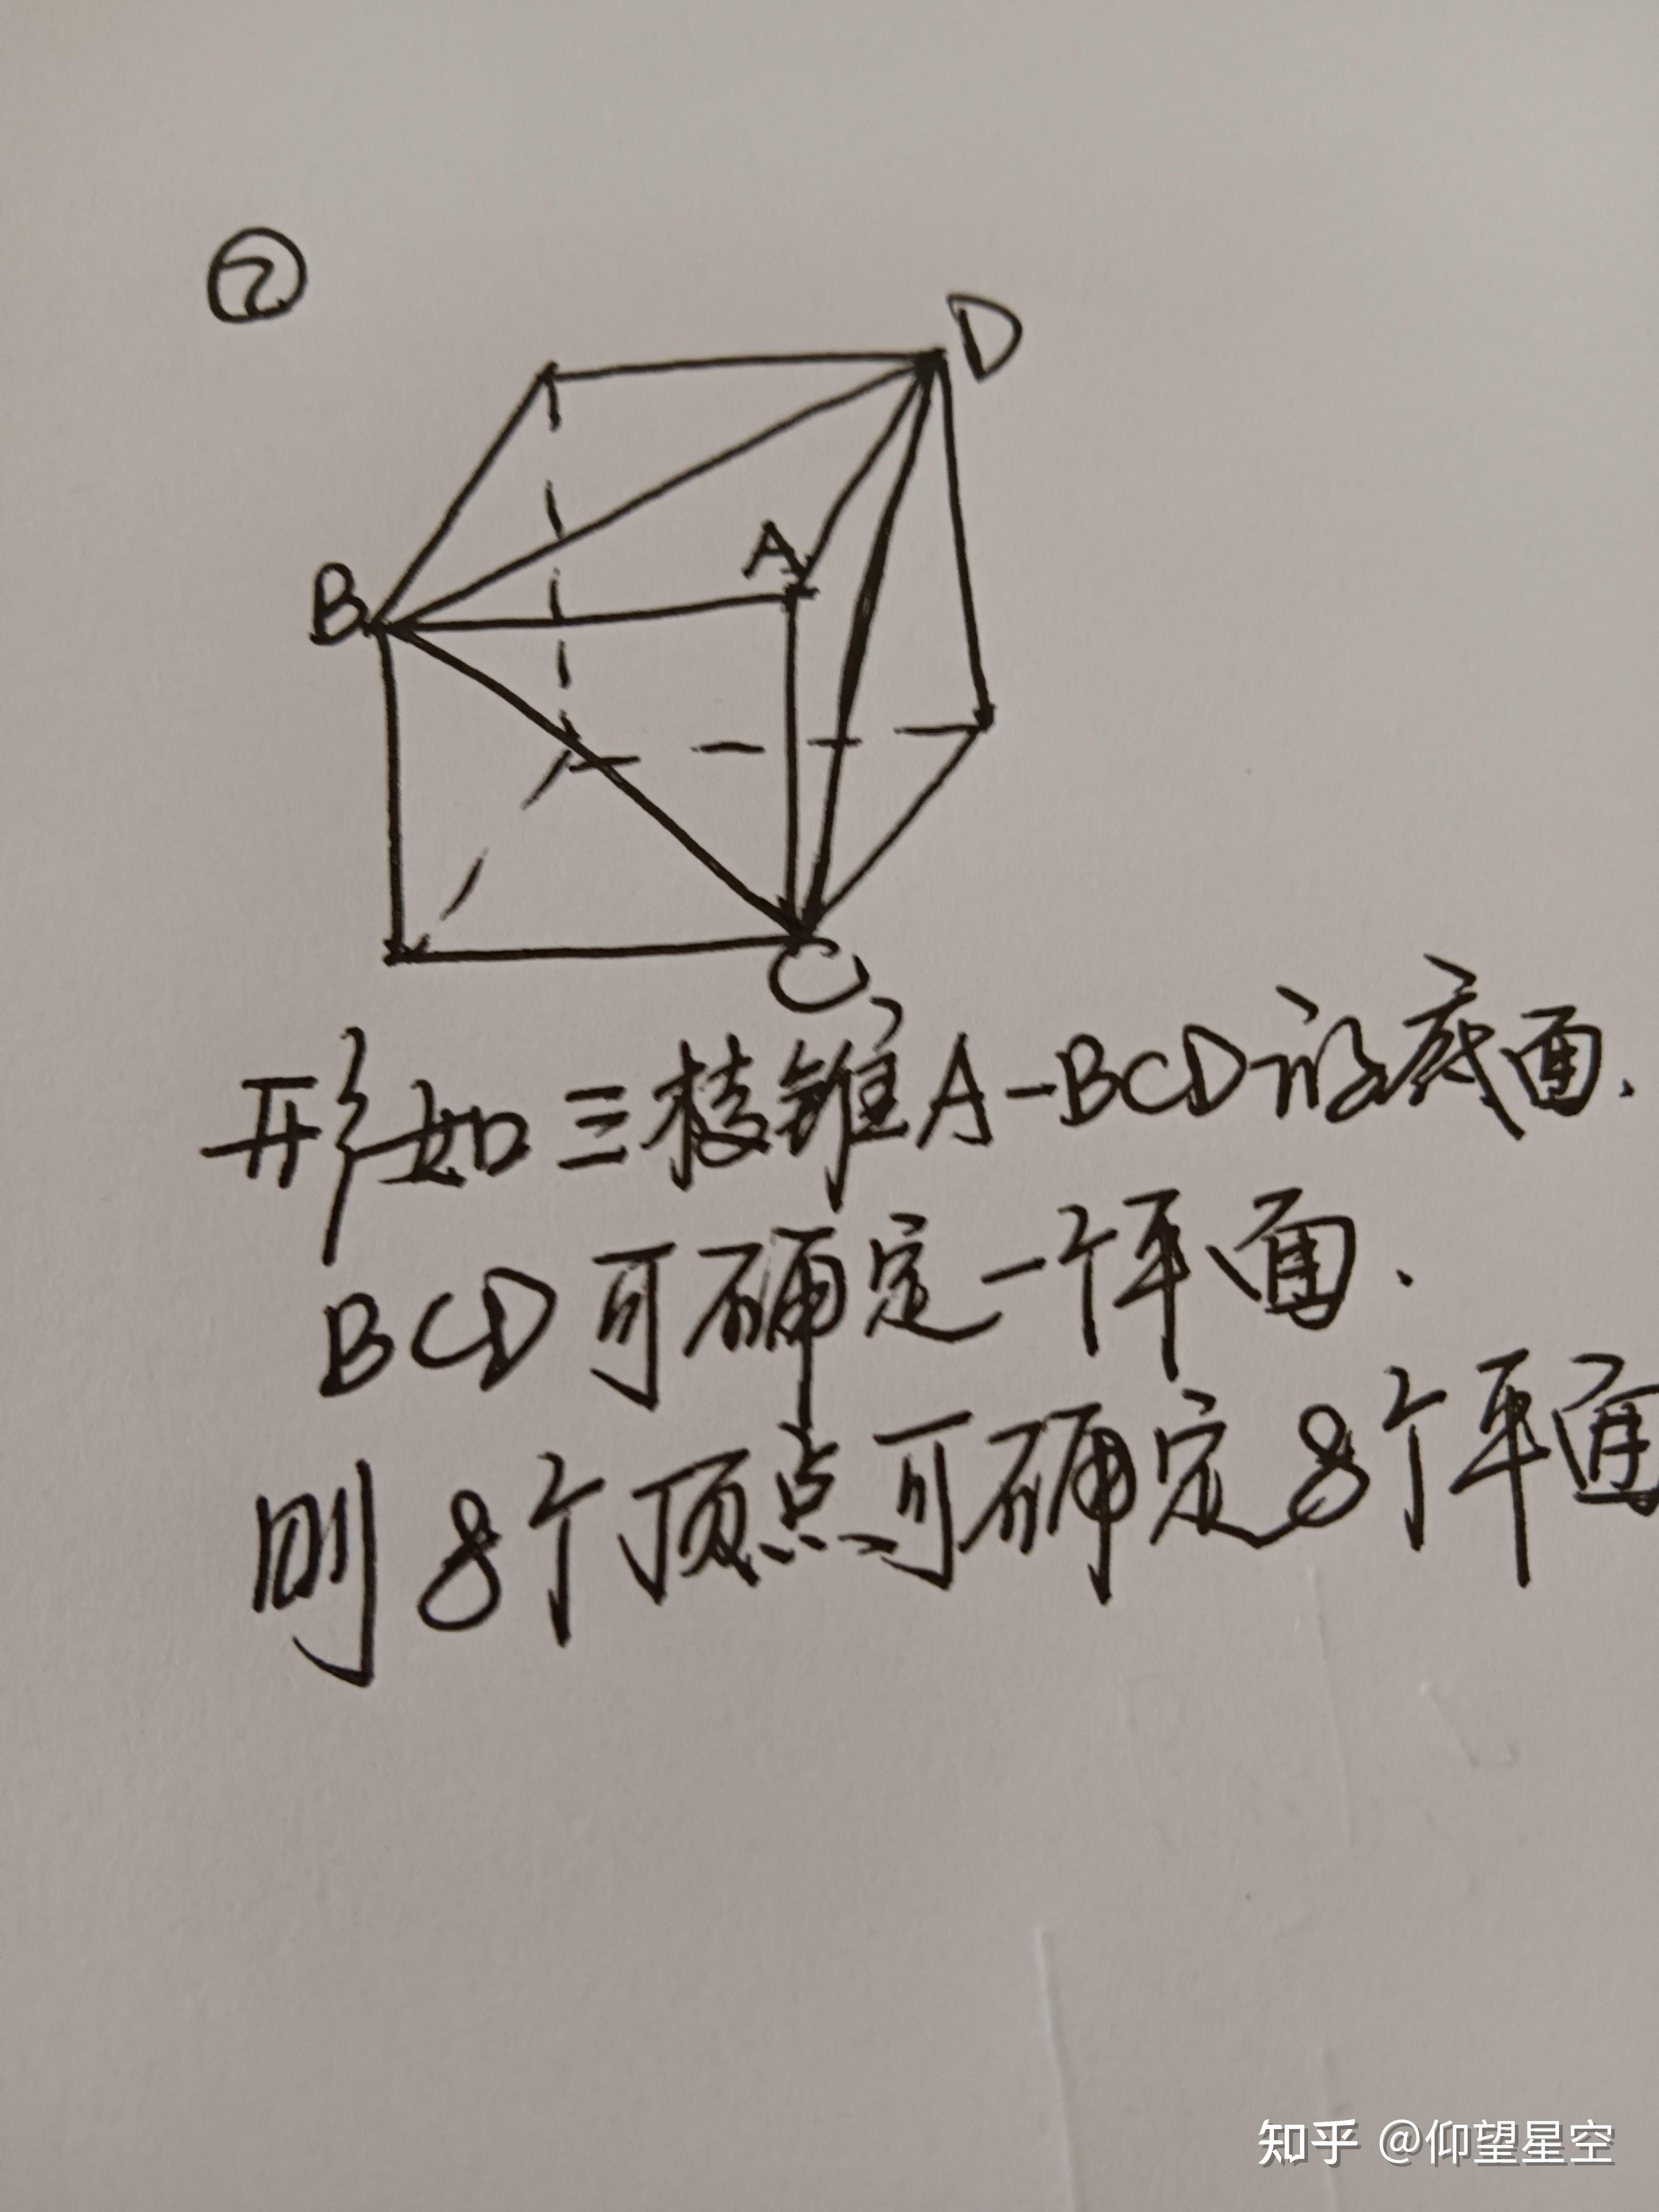 ②
D
A
B
C
形如三棱锥A-BCD的底面.
BCD可确定一个平面.
则8个顶点可确定8个平面
知乎 @仰望星空